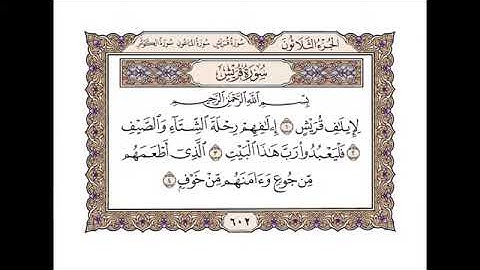 الجزء الثلاثون
سورة قريش سورة الماعون سورة الكوثر
سُورَةُ قُرَيْشٍ
بِسْمِ ٱللَّهِ ٱلرَّحْمَٰنِ ٱلرَّحِيمِ
لِإِيلَٰفِ قُرَيْشٍ ١ إِۦلَٰفِهِمْ رِحْلَةَ ٱلشِّتَآءِ وَٱلصَّيْفِ
٢ فَلْيَعْبُدُوا۟ رَبَّ هَٰذَا ٱلْبَيْتِ ٣ ٱلَّذِىٓ أَطْعَمَهُم
مِّن جُوعٍ وَءَامَنَهُم مِّنْ خَوْفٍۭ ٤
٦٠٢